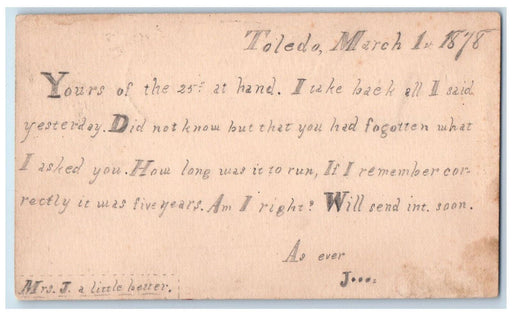 Toledo, March 1, 1878
Yours of the 25th at hand. I take back all I said
yesterday. Did not know but that you had fogotten what
I asked you. How long was it to run, If I remember cor-
rectly it was five years. Am I right? Will send int. soon.
As ever
J....
Mrs. J. a little better.